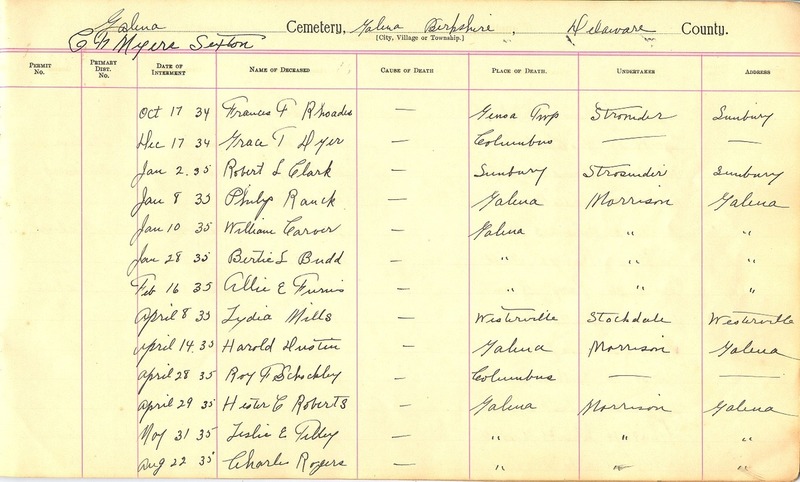 Galena Cemetery, Galena Berkshire, Delaware County.
C N Myers Sexton
[City, Village or Township.]
Permit No. Primary Dist. No. Date of Interment Name of Deceased Cause of Death Place of Death. Undertaker Address
Oct 17 34 Frances F Rhoades — Genoa Twp Strosnider Sunbury
Dec 17 34 Grace T Dyer — Columbus — —
Jan 2. 35 Robert L Clark — Sunbury Strosnider Sunbury
Jan 8 35 Philip Ranck — Galena Morrison Galena
Jan 10 35 William Carver — Galena " "
Jan 28 35 Bertie L Budd — " " "
Feb 16 35 Allie E Furnis — " " "
April 8 35 Lydia Mills — Westerville Stockdale Westerville
April 14. 35 Harold Dustin — Galena Morrison Galena
April 28 35 Roy F Schockley — Columbus — —
April 29 35 Hester C Roberts — Galena Morrison Galena
May 31 35 Leslie E Tilley — " " "
Aug 22 35 Charles Rogers — " " "